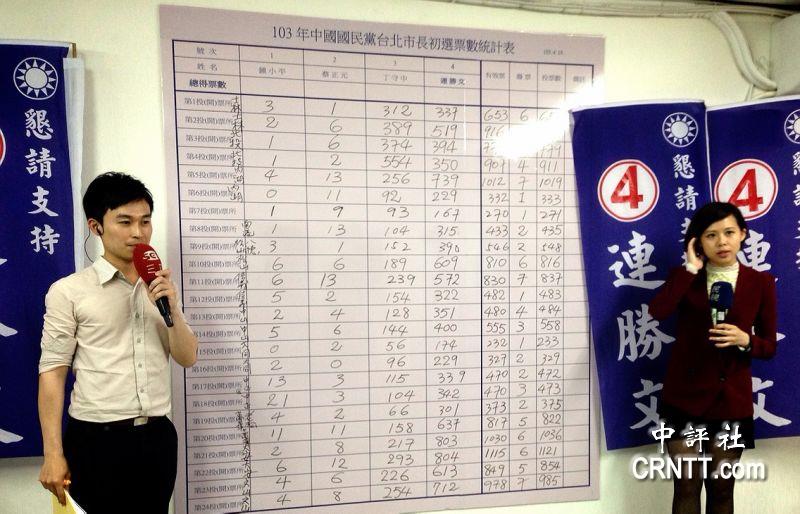 103年中國國民黨台北市長初選票數統計表
號次 1 2 3 4
姓名 鍾小平 蔡正元 丁守中 連勝文 有效票 廢票 投票數 備註
總得票數
第1投(開)票所 3 1 312 337 653 6
第2投(開)票所 2 6 389 519 916
第3投(開)票所 1 6 374 394
第4投(開)票所 1 2 554 350 907 4 911
第5投(開)票所 4 13 256 739 1012 7 1019
第6投(開)票所 0 11 92 229 332 1 333
第7投(開)票所 1 9 93 167 270 1 271
第8投(開)票所 1 13 104 315 433 2 435
第9投(開)票所 3 1 152 390 546 2 548
第10投(開)票所 6 6 189 609 810 6 816
第11投(開)票所 6 13 239 572 830 7 837
第12投(開)票所 5 2 154 322 482 1 483
第13投(開)票所 2 4 128 351 480 4 484
第14投(開)票所 5 6 144 400 555 3 558
第15投(開)票所 0 2 56 174 232 1 233
第16投(開)票所 2 0 96 229 327 2 329
第17投(開)票所 13 3 115 339 470 2 472
第18投(開)票所 21 3 104 342 470 3 473
第19投(開)票所 4 2 66 301 373 2 375
第20投(開)票所 11 11 158 637 817 5 822
第21投(開)票所 2 8 217 803 1030 6 1036
第22投(開)票所 6 12 293 804 1115 6 1121
第23投(開)票所 4 6 226 613 849 5 854
第24投(開)票所 4 8 254 712 978 7 985
懇請支持
懇請支
4
連勝文
懇請支持
4
文
三
中評社
CRNTT.com